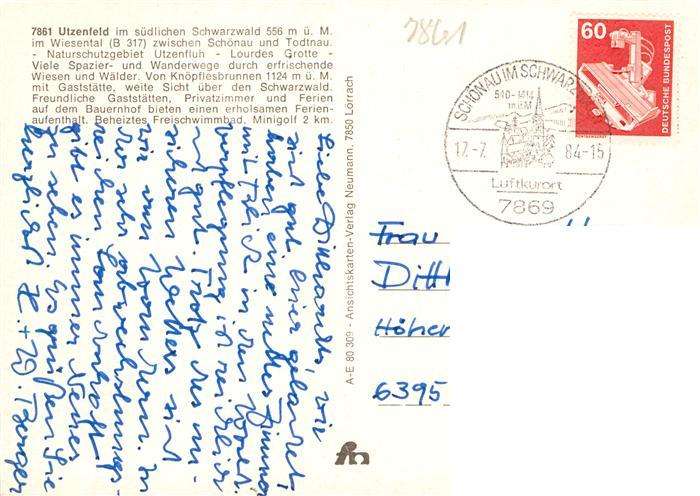 7861 Utzenfeld im südlichen Schwarzwald 556 m ü. M.
im Wiesental (B 317) zwischen Schönau und Todtnau.
- Naturschutzgebiet Utzenfluh - Lourdes Grotte -
Viele Spazier- und Wanderwege durch erfrischende
Wiesen und Wälder. Von Knöpflesbrunnen 1124 m ü. M.
mit Gaststätte, weite Sicht über den Schwarzwald.
Freundliche Gaststätten, Privatzimmer und Ferien
auf dem Bauernhof bieten einen erholsamen Ferien-
aufenthalt. Beheiztes Freischwimmbad. Minigolf 2 km.
7861
60
DEUTSCHE BUNDESPOST
SCHÖNAU IM SCHWARZ
540-1414
m ü M
17.-7. 84-15
Luftkurort
7869
A-E 80 309 - Ansichtskarten-Verlag Neumann, 7850 Lörrach
Frau
Ditt
Höher
6395
Liebe wir
sind gut hier gelandet,
haben eine nettes Zimmer
mit Frühstück in der
Verpflegung ist reichlich
und gut. Trotz des un-
sicheren Wetters sind
wir am Wandern. In
der sehr abwechslungs-
reichen Landschaft
gibt es immer Neues
zu sehen. Es grüßen Sie
herzlich H. + W. Berger